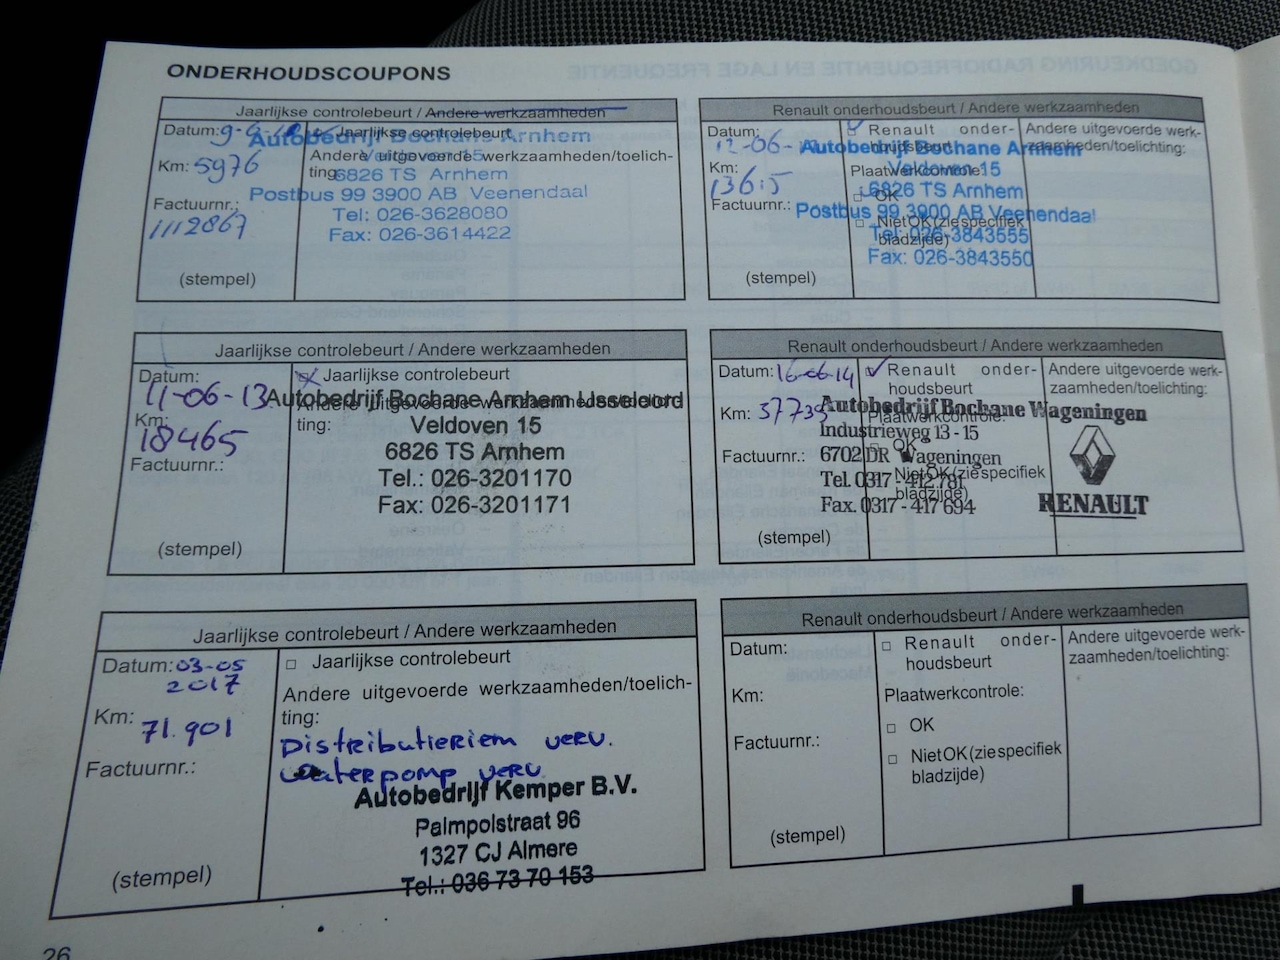 ONDERHOUDSCOUPONS
Jaarlijkse controlebeurt / Andere werkzaamheden
Datum:
Jaarlijkse controlebeurt
Km: 5976
Andere uitgevoerde werkzaamheden/toelich-
ting:
Factuurnr.:
1112867
(stempel)
Autobedrijf Bochane Arnhem
6826 TS Arnhem
Postbus 99 3900 AB Veenendaal
Tel: 026-3628080
Fax: 026-3614422
Renault onderhoudsbeurt / Andere werkzaamheden
Datum:
12-06-
Km:
Factuurnr.:
(stempel)
Renault onder-
houdsbeurt
Plaatwerkcontrole:
OK
Niet OK (zie specifiek
bladzijde)
Andere uitgevoerde werk-
zaamheden/toelichting:
Autobedrijf Bochane Arnhem
Veldoven 15
6826 TS Arnhem
Postbus 99 3900 AB Veenendaal
Tel: 026-3843555
Fax: 026-3843550
Jaarlijkse controlebeurt / Andere werkzaamheden
Datum:
11-06-13
Km:
18465
Factuurnr.:
(stempel)
Jaarlijkse controlebeurt
Andere uitgevoerde werkzaamheden/toelich-
ting:
Autobedrijf Bochane Arnhem IJsseloord
Veldoven 15
6826 TS Arnhem
Tel.: 026-3201170
Fax: 026-3201171
Renault onderhoudsbeurt / Andere werkzaamheden
Datum: 16-06-14
Km: 37735
Factuurnr.:
(stempel)
Renault onder-
houdsbeurt
Plaatwerkcontrole:
OK
Niet OK (zie specifiek
bladzijde)
Andere uitgevoerde werk-
zaamheden/toelichting:
Autobedrijf Bochane Wageningen
Industrieweg 13 - 15
6702 DR Wageningen
Tel. 0317 - 412 781
Fax. 0317 - 417 694
RENAULT
Jaarlijkse controlebeurt / Andere werkzaamheden
Datum: 03-05
2017
Km: 71.901
Factuurnr.:
(stempel)
Jaarlijkse controlebeurt
Andere uitgevoerde werkzaamheden/toelich-
ting:
Distributieriem verv.
waterpomp verv.
Autobedrijf Kemper B.V.
Palmpolstraat 96
1327 CJ Almere
Tel.: 036 73 70 153
Renault onderhoudsbeurt / Andere werkzaamheden
Datum:
Km:
Factuurnr.:
(stempel)
Renault onder-
houdsbeurt
Plaatwerkcontrole:
OK
Niet OK (zie specifiek
bladzijde)
Andere uitgevoerde werk-
zaamheden/toelichting:
26